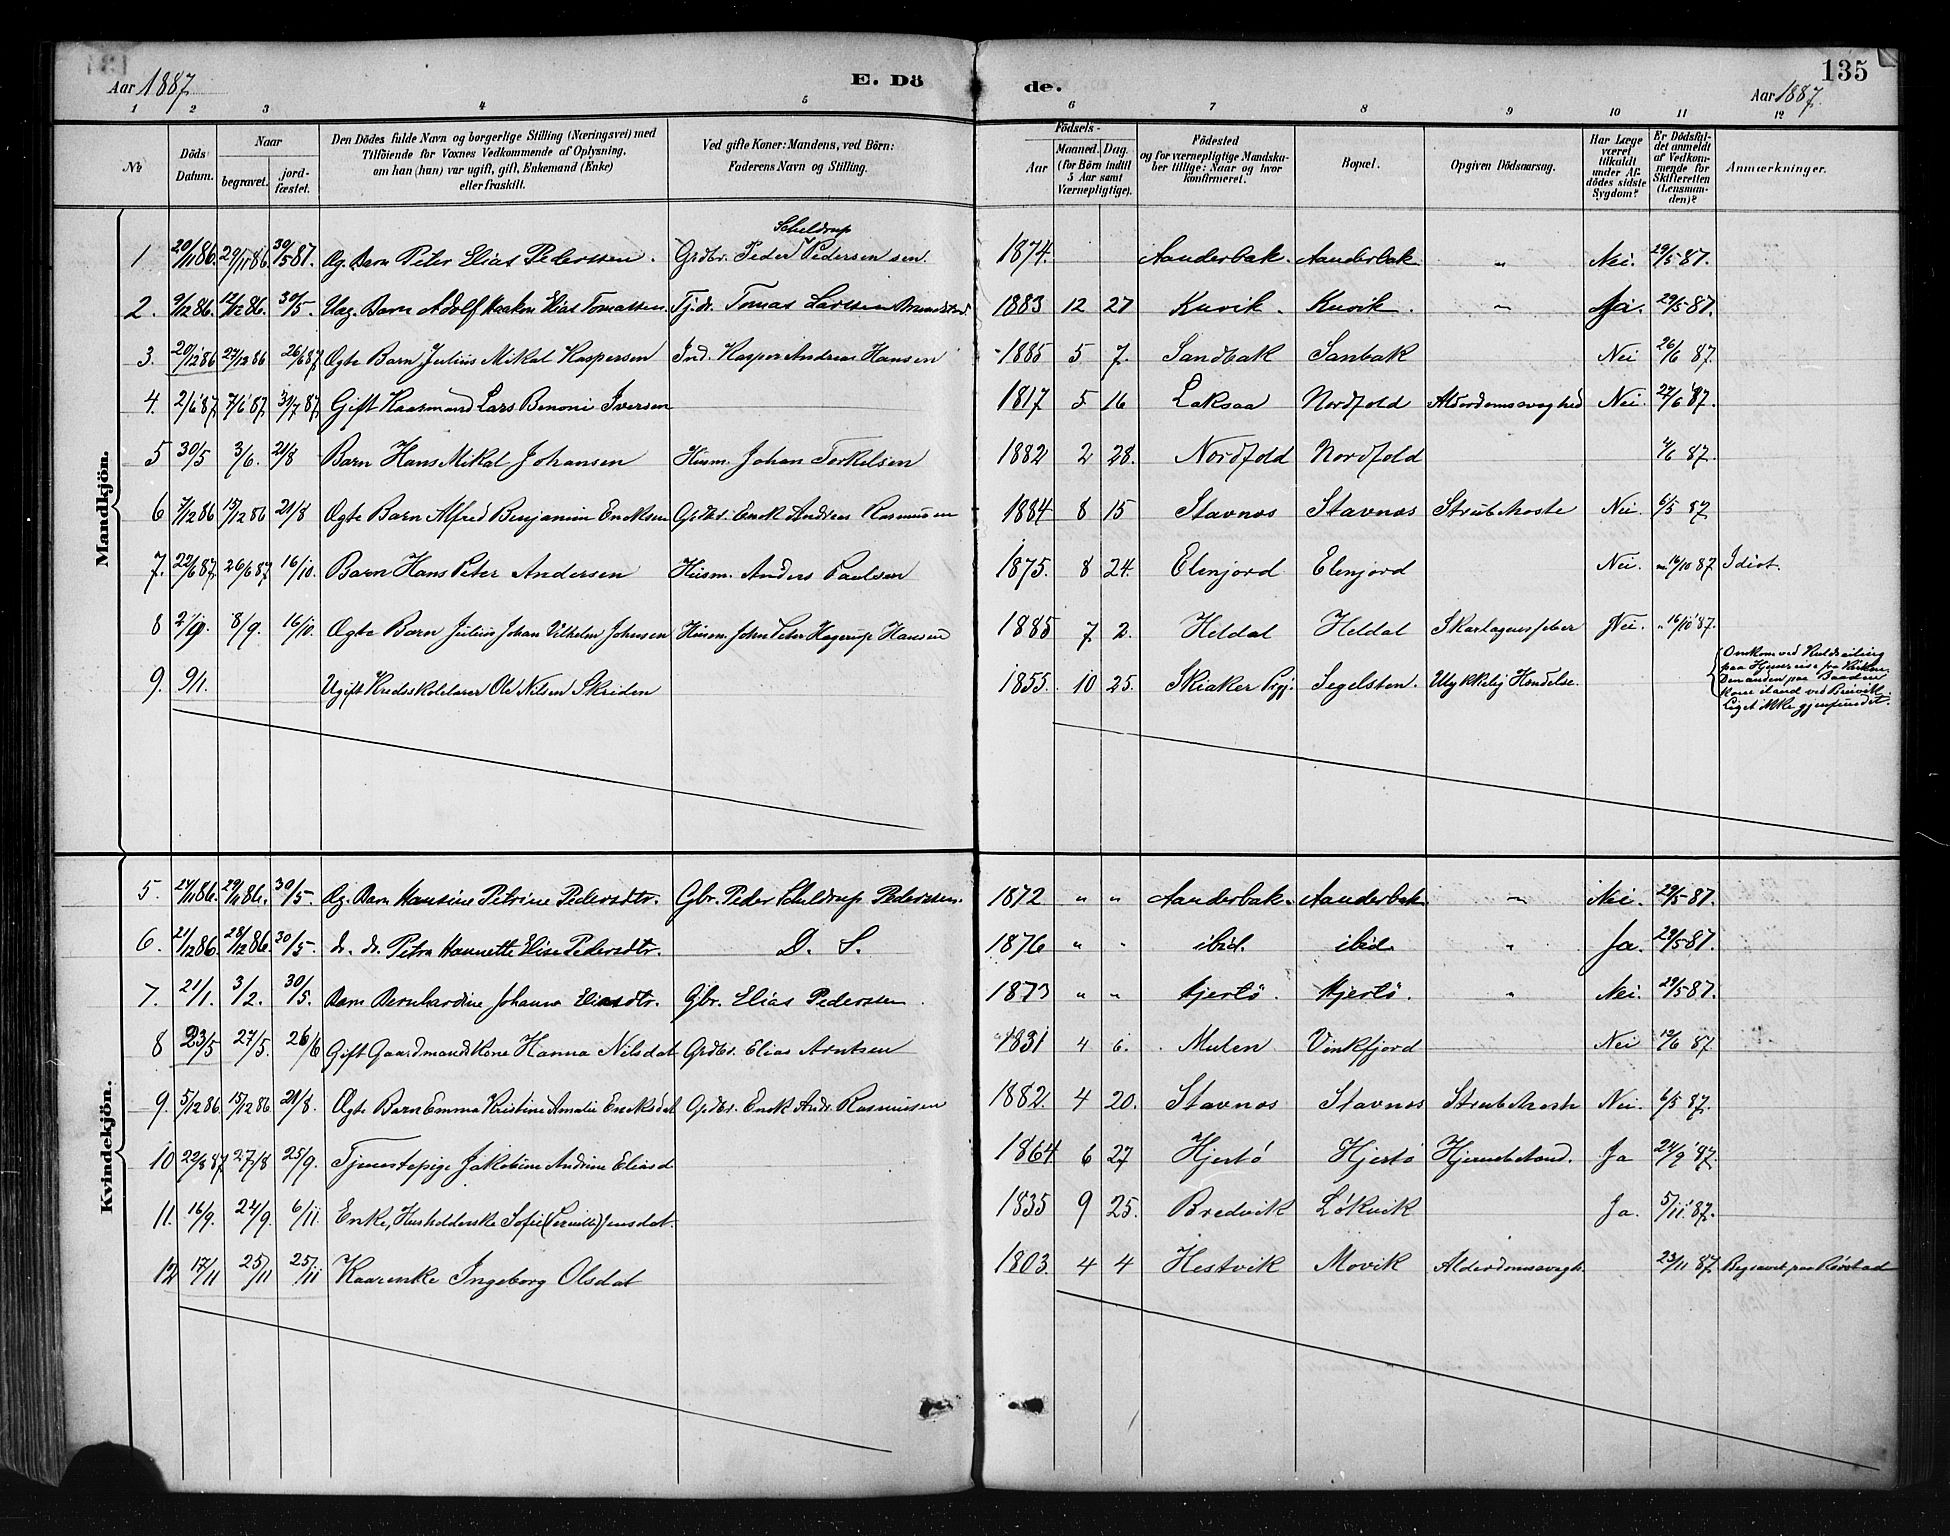 Aar 1887. E. Dö de. 135
Aar 1887.
1 2 3 4 5 6 7 8 9 10 11 12
No
Döds Datum.
Naar
begravet.
jordfæstet.
Den Dödes fulde Navn og borgerlige Stilling (Næringsvei) med
Tilföiende for Voxnes Vedkommende af Oplysning,
om han (hun) var ugift, gift, Enkemand (Enke)
eller fraskilt.
Ved gifte Koner: Mandens, ved Börn:
Faderens Navn og Stilling.
Födsels-
Aar
Maaned. Dag.
(for Börn indtil
5 Aar samt
Værnepligtige).
Födested
og for værnepligtige Mandska-
ber tillige: Naar og hvor
konfirmeret.
Bopæl.
Opgiven Dödsaarsag.
Har Læge
været
tilkaldt
under Af-
dödes sidste
Sygdom?
Er Dödsfal-
det anmeldt
af Vedkom-
mende for
Skifteretten
(Lensman-
den)?
Anmærkninger.
Mandkjön.
Schildrup
1 20/11 86. 29/11 86. 30/5 87. Æg. Barn Peter Elias Pederssen. Grdbr. Peder Pedersen sen. 1874. Aanderbak. Aanderbak " Nei. 29/5 87.
2. 9/12 86. 12/12 86. 30/5. Uæg. Barn Adolf Haakon Elias Tomassen. Tj.dr. Tomas Larssen 1883 12 27 Kuvik. Kuvik. " Nei. 29/5 87.
3. 20/12 86 27/12 86 26/6 87 Ægte Barn Julius Mikal Kaspersen Ind. Kasper Andreas Hansen 1885 5 7. Sandbak Sanbak Nei 26/6 87.
4. 2/6 87. 7/6 87. 31/7 87. Gift Kaarmand Lars Benoni Iversen 1817 5 16 Laksaa Nordfold Alderdomssvaghed Nei. 27/6 87.
5 30/5 3/6. 21/8 Barn Hans Mikal Johansen Husm. Johan Torkelsen 1882 2 28. Nordfold Nordfold 4/6 87.
6 7/12 86 15/12 86 21/8 Ægte Barn Alfred Benjamin Ericksen Grdbr. Erick Andreas Rasmussen 1884 8 15 Stavnes Stavnes Strubehoste Nei. 6/5 87
7. 22/6 87. 26/6 87 16/10. Barn Hans Peter Andersen Husm. Anders Paulsen 1875. 8 24. Elenjord Elenjord Nei. 16/10 87 Idiot.
8 2/9. 8/9. 16/10. Ægte Barn Julius Johan Vilhelm Johnsen Husm. John Peter Hagerup Hansen 1885 7. 2. Heldal Heldal Skarlagensfeber Nei. " 16/10 87.
9. 9/1. Ugift Kredsskolelærer Ole Nilsen Skriden 1855. 10 25. Skiaker Pgj. Segelsten. Ulykkelig Hændelse.
Omkom ved Kuldseiling
paa Hjemreise fra Kirken.
Den anden paa Baaden
kom iland ved
Liget ikke gjenfundet.
Kvindekjön.
5. 24/11 86. 29/11 86. 30/5. Æg. Barn Hansine Petrine Pedersdtr. Gbr. Peder Schildrup Pederssen. 1872 " " Aanderbak. Aanderbak " Nei. 29/5 87.
6. 21/12 86. 28/12 86. 30/5. d. do. Petra Hannette Elise Pedersdtr. D. S. 1876 " " ibid. ibid. " Ja. 29/5 87.
7. 21/1. 3/2. 30/5. Barn Bernhardine Johanna Eliasdtr. Gbr. Elias Pederssen 1873 " " Hjertö. Hjertö. " Nei. 29/5 87.
8 23/5 27/5. 26/6 Gift Gaardmandskone Hanna Nilsdat Grdbr. Elias Arntsen 1831 4 6. Mulen Vinkfjord Nei 12/6 87.
9. 5/12 86. 15/12 86. 21/8. Ægte Barn Emma Kristine Amalie Ericksdat Grdbr. Erick Andr. Rasmusen 1882. 4 20. Stavnes Stavnes Strubehoste Nei. 6/5 87.
10 22/8 87 27/8 25/9. Tjenestepige Jakobine Andrine Eliasd 1864 6 27 Hjertö Hjertö Hjernebetænd. Ja 24/9 87.
11. 16/9. 24/9. 6/11. Enke, Husholderske Sofie (Pernille) Jensdat. 1835 9 25. Bredvik Lökvik Ja. 5/11 87.
12 17/11 25/11 25/11 Kaarenke Ingeborg Olsdat 1803. 4 4 Hestvik Movik Alderdomssvagh. 23/11 87. Begravet paa Rörstad